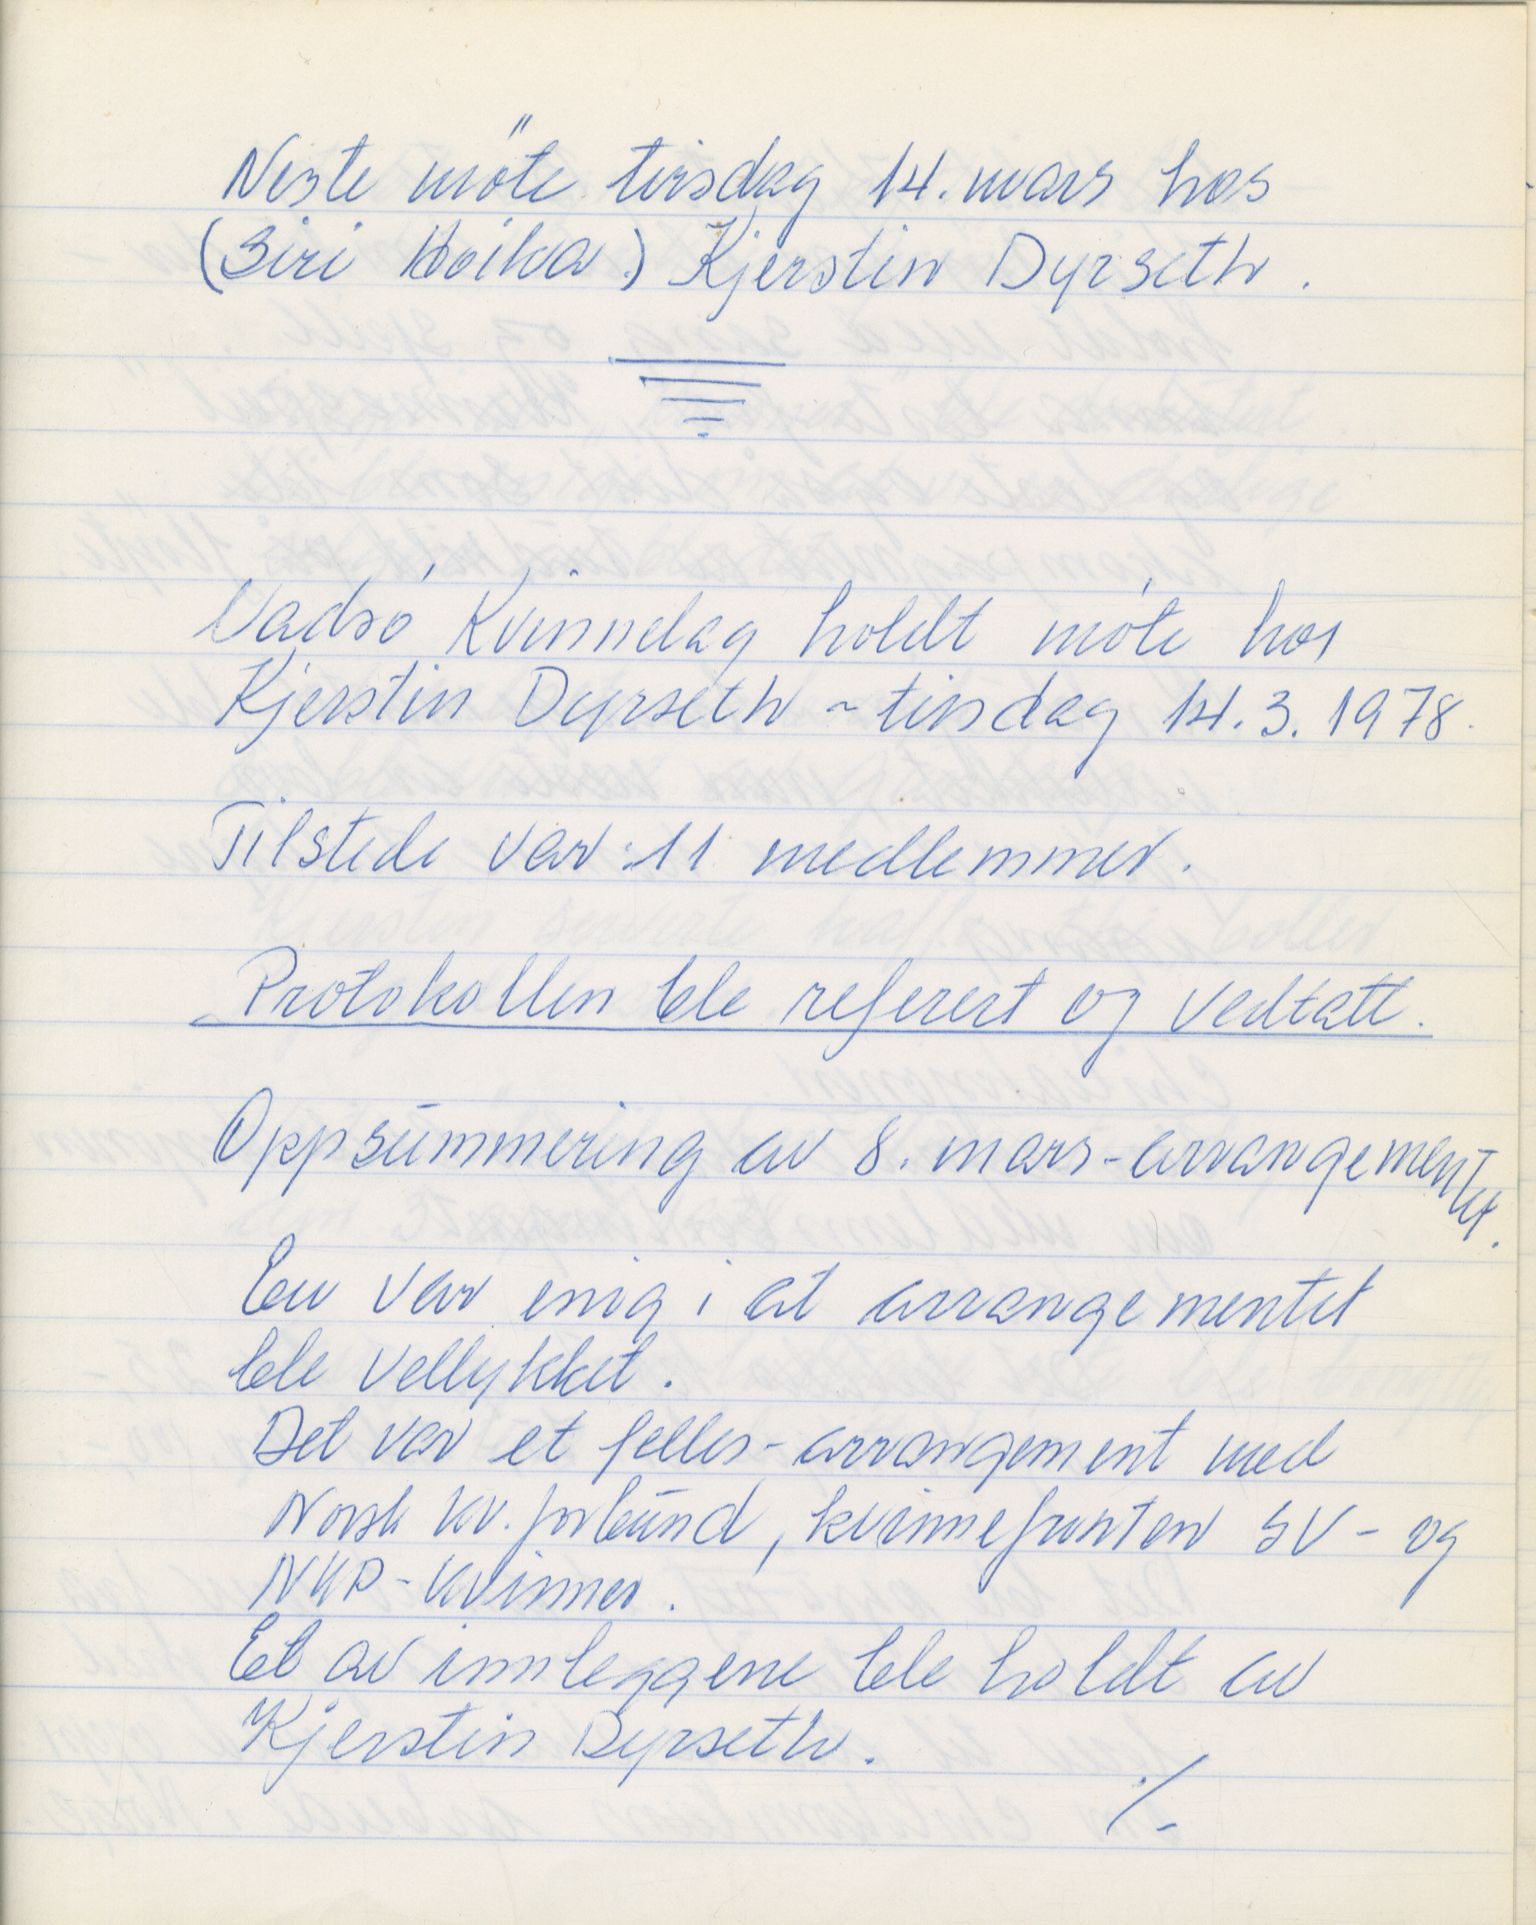 Neste möte tirsdag 14. mars hos
(Siri Hoika) Kjerstin Dyrseth.
Vadsó Kvinnelag holdt móte hos
Kjerstin Dyrseth - tirsdag 14.3.1978.
Tilstede var: 11 medlemmer.
Protokollen ble referert og vedtatt.
Oppsummering av 8. mars-arrangementet.
En var enig i at arrangementet
ble vellykket.
Det var et felles-arrangement med
Norsk kv.forbund, kvinnefronten SV- og
NKP-kvinner.
Et av innleggene ble holdt av
Kjerstin Dyrseth.
./-